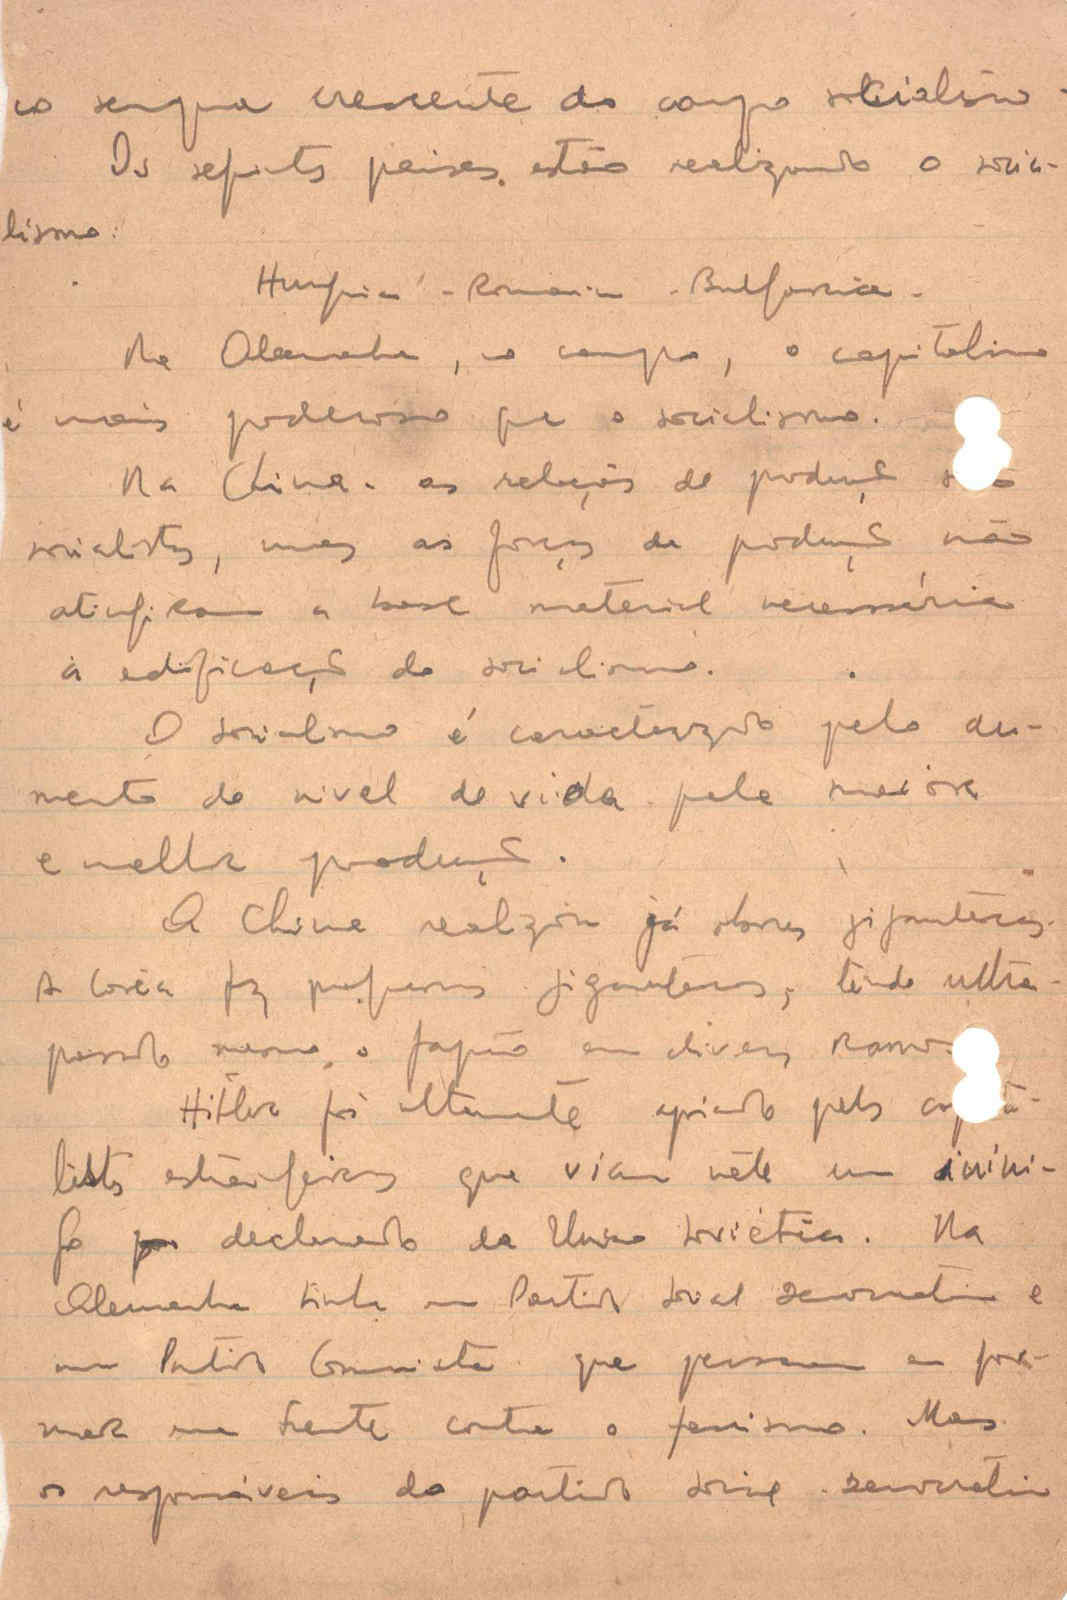 crescente do campo socialismo -
Os seguintes paises. estão realizando o socia-
lismo:
Hungria - Romania - Bulgaria -
Na Alemanha, no campo, o capitalismo
é mais poderoso que o socialismo.
Na China. as relações de produção são
socialistas, mas as forças de produção não
atingiram a base material necessária
à edificação do socialismo.
O socialismo é caracterizado pelo au-
mento do nivel de vida pela maior
e melhor produção.
A China realizou já obras gigantescas.
A Coréa fez gigantescos, tendo ultra-
passado mesmo, o Japão em diversos ramos.
Hitler foi altamente apoiado pelos capita-
listas estrangeiros que viam nêle um inimi-
go declarado da União Soviética. Na
Alemanha tinha um Partido Social democratico e
um Partido Comunista que pensaram em for-
mar uma frente contra o fascismo. Mas
os responsáveis do partido social-democratico